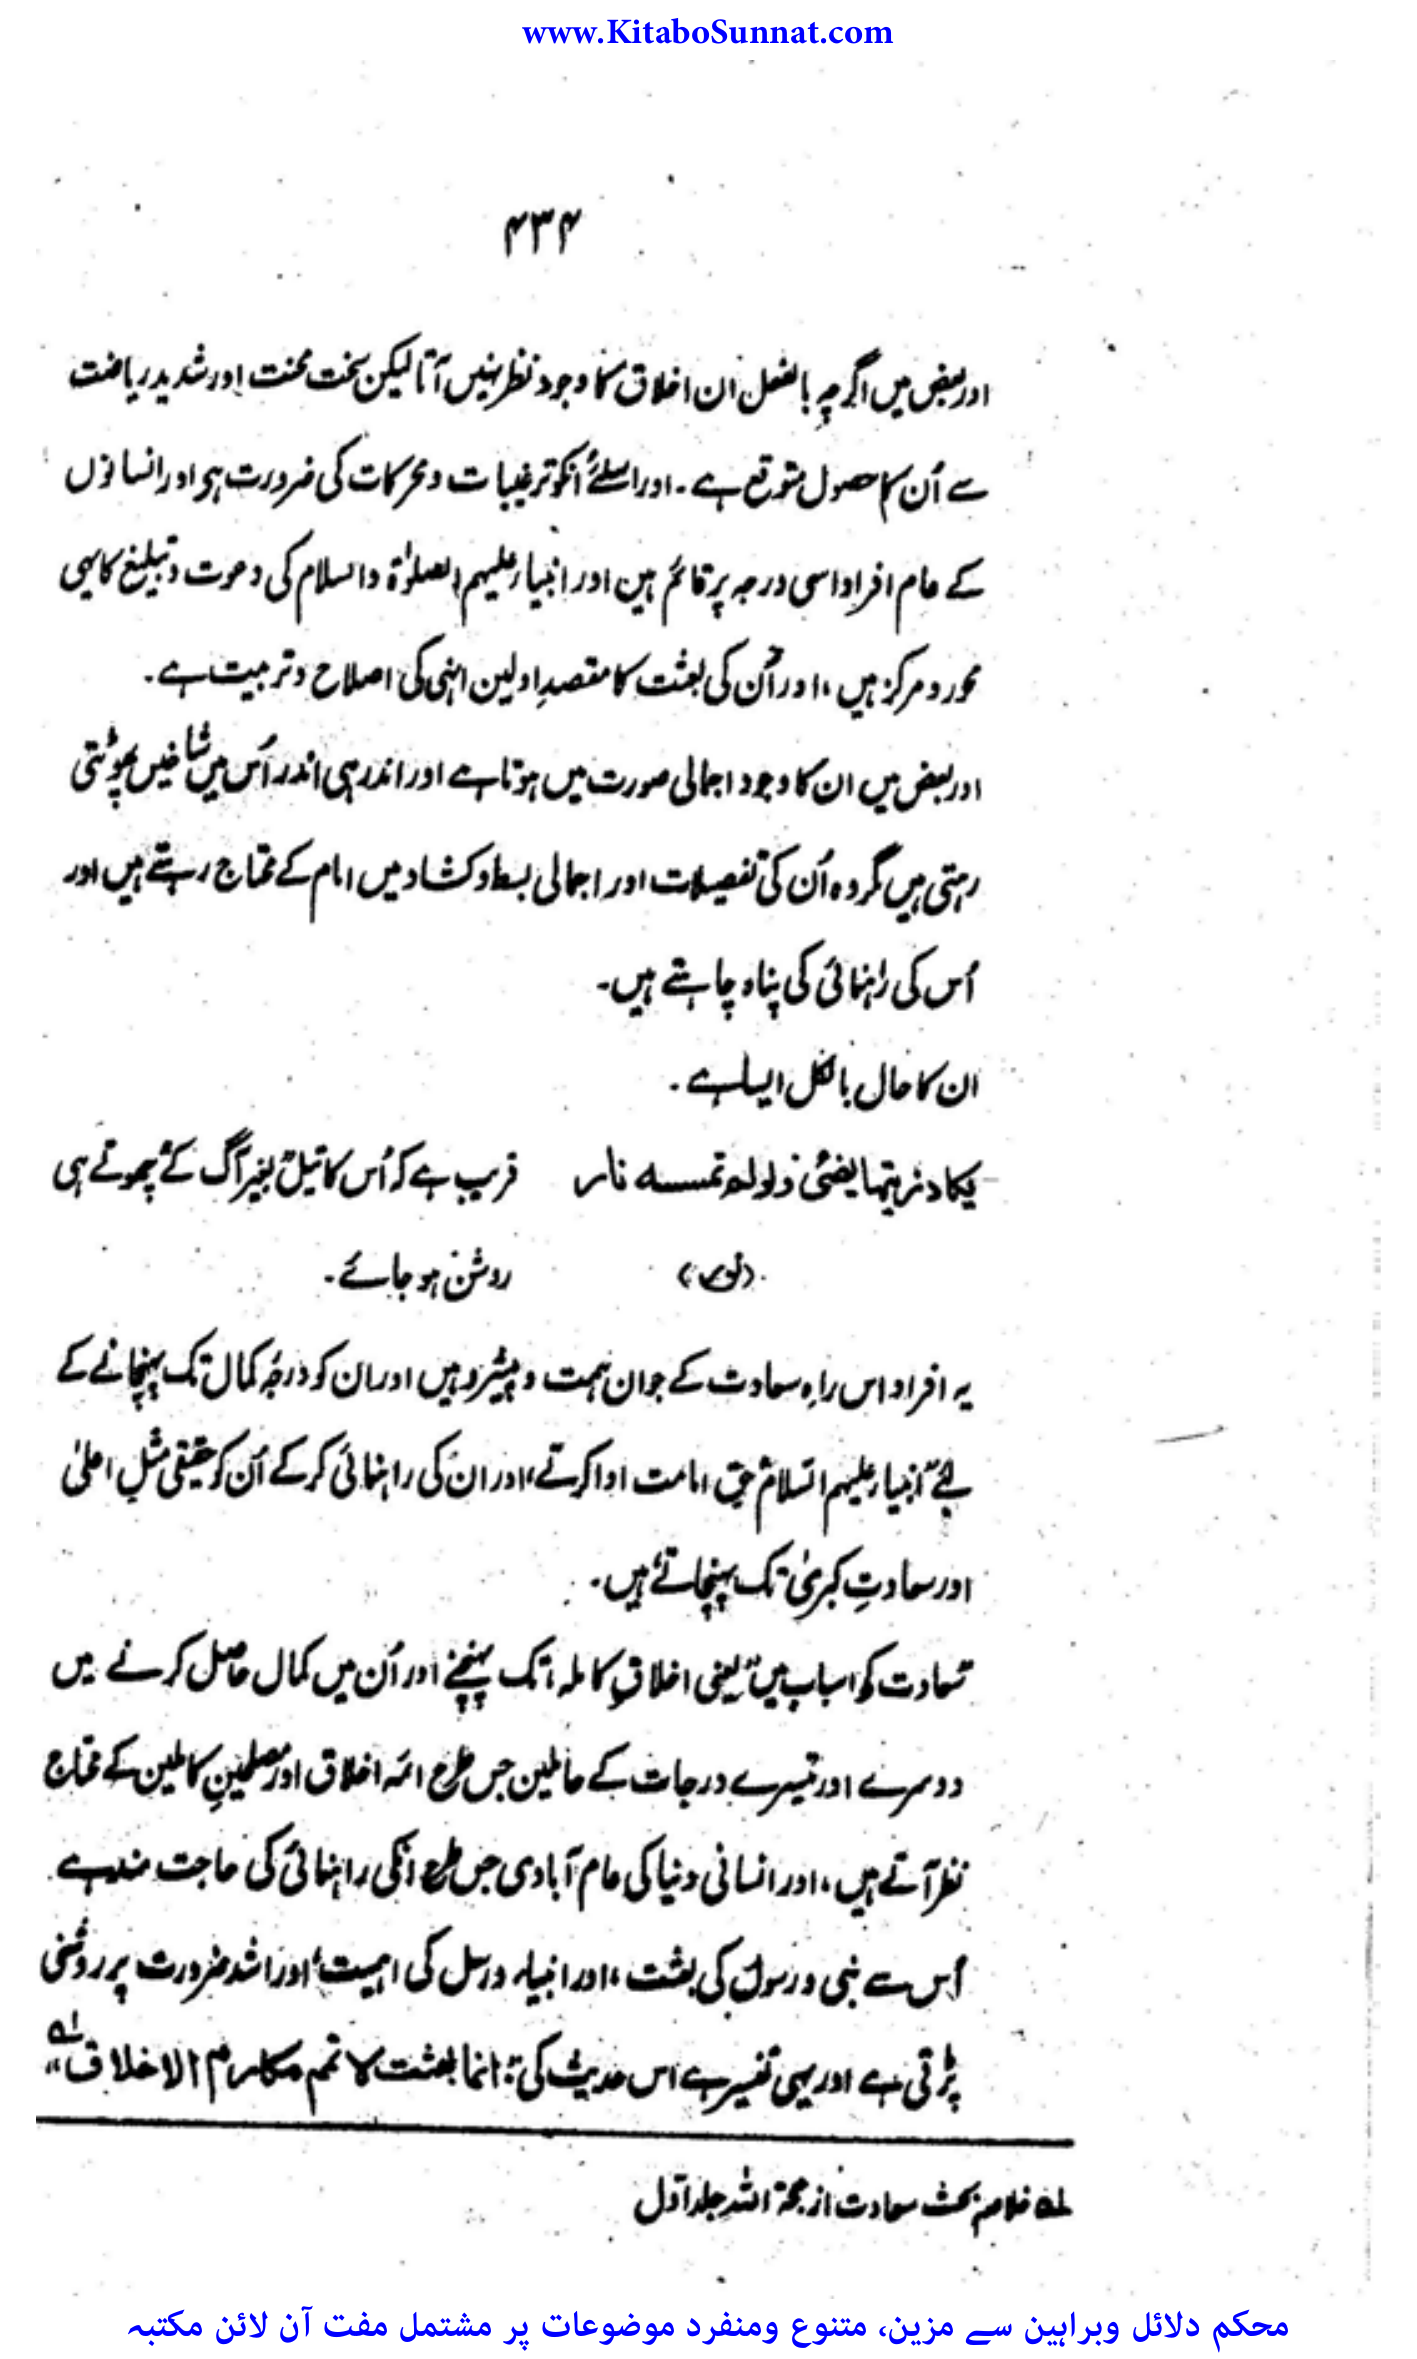 www.KitaboSunnat.com
۴۳۴
اور بعض میں اگرچہ بالفعل ان اخلاق کا وجود نظر نہیں آتا لیکن سخت محنت اور شدید ریاضت
سے اُن کا حصول متوقع ہے۔ اور اسلئے اُنکو ترغیبات و محرکات کی ضرورت ہی اور انسانوں
کے عام افراد اسی درجہ پر قائم ہین اور انبیار علیہم الصلوٰۃ والسلام کی دعوت و تبلیغ کا یہی
محور و مرکز ہیں، اور اُن کی بعثت کا مقصدِ اولین انہی کی اصلاح و تربیت ہے۔
اور بعض میں ان کا وجود اجمالی صورت میں ہوتا ہے اور اندر ہی اندر اُس میں شاخیں پھوٹتی
رہتی ہیں مگر وہ اُن کی تفصیلات اور اجمالی بسط و کشاد میں امام کے محتاج رہتے ہیں اور
اُس کی راہنمائی کی پناہ چاہتے ہیں۔
ان کا حال بالکل ایسا ہے۔
یکاد زیتہا یضئی ولو لم تمسسہ نار قریب ہے کہ اُس کا تیل بغیر آگ کے چھوتے ہی
(نور) روشن ہو جائے۔
یہ افراد اس راہِ سعادت کے جوان ہمت و پیشرو ہیں اور ان کو درجۂ کمال تک پہنچانے کے
لئے انبیار علیہم السلام حقِ امامت ادا کرتے، اور ان کی راہنمائی کر کے اُن کو حقیقی مثلِ اعلیٰ
اور سعادتِ کبریٰ تک پہنچاتے ہیں۔
سعادت کو اسباب میں یعنی اخلاقِ کاملہ تک پہنچنے اور اُن میں کمال حاصل کرنے میں
دوسرے اور تیسرے درجات کے حاملین جس طرح ائمہ اخلاق اور مصلحینِ کاملین کے محتاج
نظر آتے ہیں، اور انسانی دنیا کی عام آبادی جس طرح انکی راہنمائی کی حاجت مند ہے
اُس سے نبی و رسول کی بعثت، اور انبیاء و رسل کی اہمیت، اور اشد ضرورت پر روشنی
پڑتی ہے اور یہی تفسیر ہے اس حدیث کی: انما بعثت لاتمم مکارم الاخلاق" لہ
لہ خلاصہ بحث سعادت از حجۃ اللہ جلد اوّل
محکم دلائل وبراہین سے مزین، متنوع ومنفرد موضوعات پر مشتمل مفت آن لائن مکتبہ